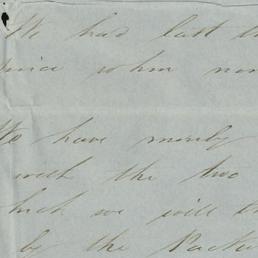 We had last
since when non
We have merely
with the two
hich we will th
by the Packe